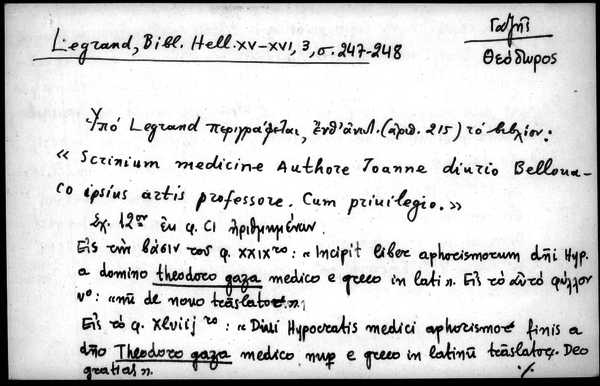 Γαζῆς
Θεόδωρος
Legrand, Bibl. Hell. XV-XVI, 3, σ. 247-248
Ὑπό Legrand περιγράφεται, ἔνθ' ἀνωτ. (ἀριθ. 215) τό βιβλίον:
« Scrinium medicine Authore Ioanne diurio Bellova-
co ipsius artis professore. Cum priuilegio.»
Σχ. 12ον ἐκ φ. CI ἠριθμημένων.
Εἰς τήν βάσιν τοῦ φ. XXIX ro: «Incipit liber aphorismorum dñi Hyp.
a domino theodoro gaza medico e greco in lati». Εἰς τό αὐτό φύλλον
vo: «nũ de novo trãslator».
Εἰς τό φ. xlviij ro: «Diui Hypocratis medici aphorismor finis a
dño Theodoro gaza medico nup e greco in latinũ trãslator. Deo
gratias».